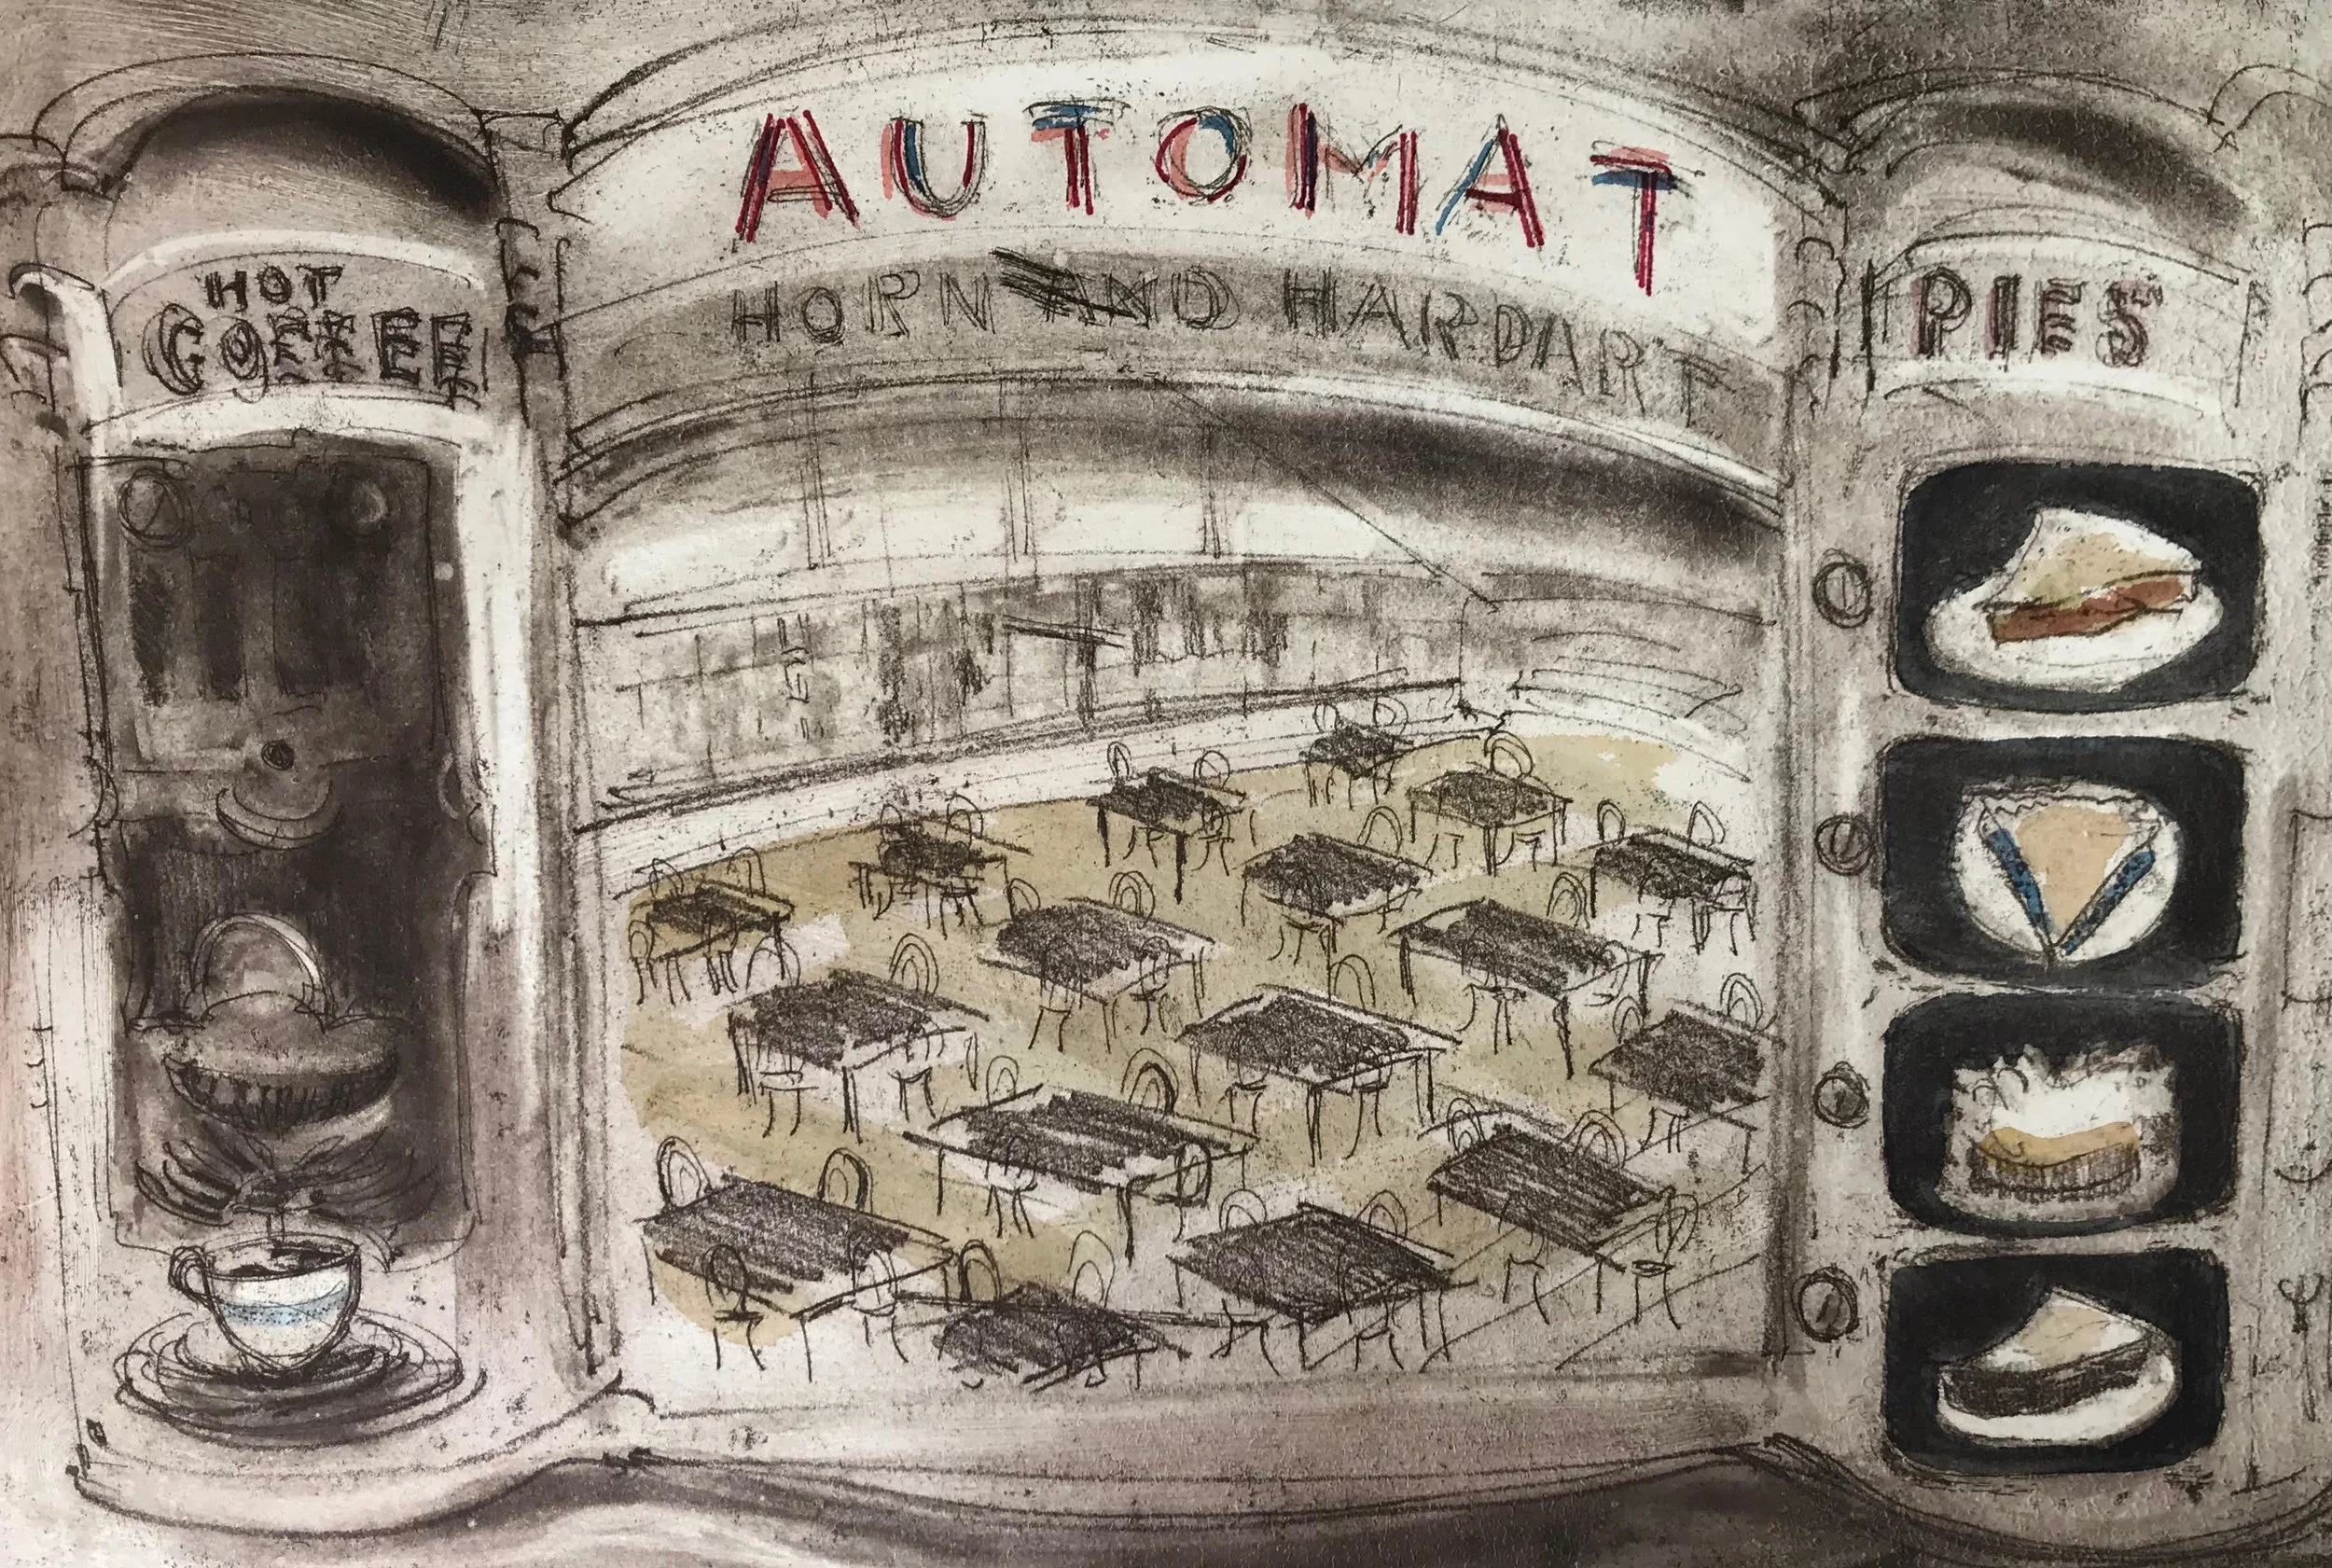 AUTOMAT
HORN AND HARDART
HOT
COFFEE
PIES